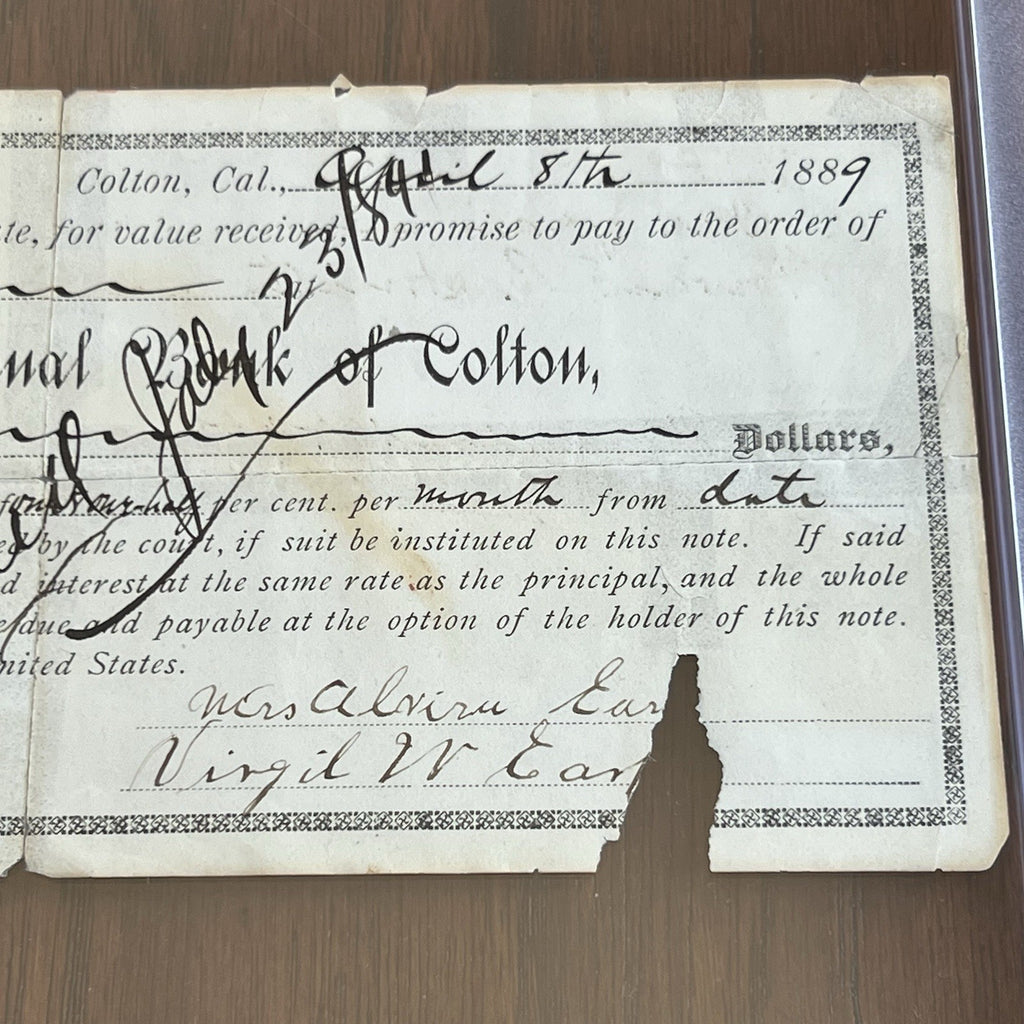 Colton, Cal., April 8th 1889
te, for value received, I promise to pay to the order of
at
nal Bank of Colton,
Dollars,
one-half per cent. per month from date
ed by the court, if suit be instituted on this note. If said
d interest at the same rate as the principal, and the whole
e due and payable at the option of the holder of this note.
nited States.
Mrs Alvira Ear
Virgil W Earp
Paid
23/84